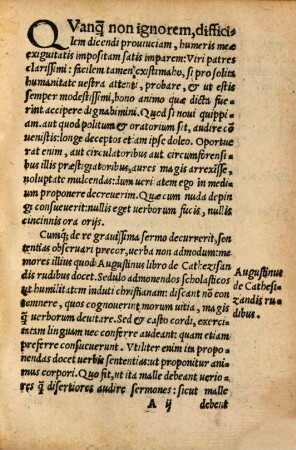 QVanq̃ non ignorem, difficilem
dicendi prouinciam, humeris meæ
exiguitatis impositam satis imparem: Viri patres
clarissimi: facilem tamen existimaho, si pro solita
humanitate vestra attenti, probare, & ut estis
semper modestissimi, bono animo quæ dicta fuerint
accipere dignabimini. Quod si noui quippiam,
aut quod politum & oratorium sit, audire conuenistis:
longe deceptos et iam ipse doleo. Oportuerat
enim, aut circulatoribus aut circumforensibus
illis præstigiatoribus, aures magis arrexisse,
uoluptate mulcendas: dum ueri atem ego in medium
proponere decreuerim. Quæ cum nuda depingi
consueuerit: nullis eget uerborum fucis, nullis
cincinnis ora orijs.
Cumq; de re grauissima sermo decurrerit, sententias
obseruari precor, verba non admodum: memores
illius quod Augustinus libro de Cathezisandis
rudibus docet. Sedulo admonendos scholasticos
et humilitatem induti christianam: discant nõ contemnere,
quos cognouerint morum uitia, magis
q̃ uerborum deuitare. Sed & casto cordi, exercitatam
linguam nec conferre audeant: quam etiam
preferre consueuerunt. Vtiliter enim ita proponendas
docet uerbis sententias: ut proponitur animus
corpori. Quo fit, ut ita malle debeant ueriores
q̃ disertiores audire sermones: sicut malle
Augustinus
de Cathesizandis
rudibus.
A ij
debent